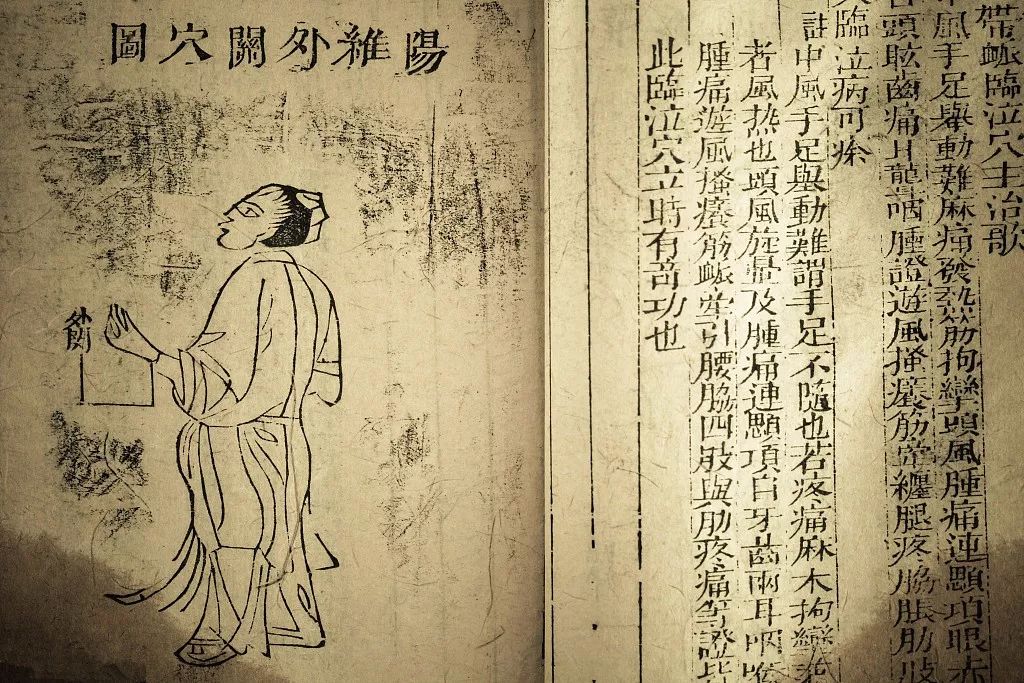 帶脈臨泣穴主治歌
風手足舉動難麻痛發熱筋拘攣頭風腫痛連顋項眼赤
頭眩齒痛耳聾咽腫證遊風搔癢筋牽纏腿疼脇脹肋肢
臨泣病可痊
註中風手足舉動難謂手足不隨也若疼痛麻木拘攣
者風热也頭風旋暈及腫痛連顋項目牙齒兩耳咽喉
腫痛遊風搔癢筋脈牽引腰脇四肢與肋疼痛等證皆
此臨泣穴立時有奇功也
陽維外關穴圖
外関